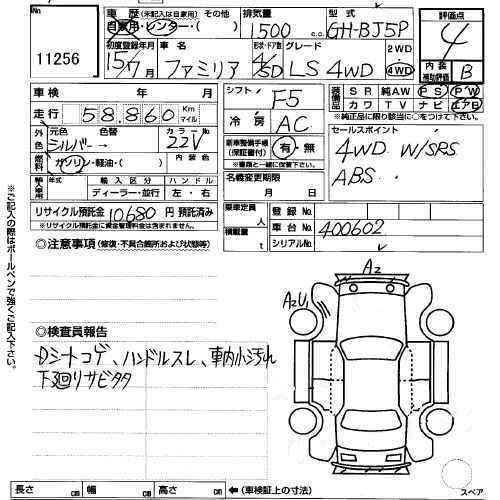 No.
11256
車歴 (未記入は自家用) その他
自家用・レンター・( )
排気量
1500 c.c.
型式
GH-BJ5P
評価点
4
初度登録年月
15/7月
車名
ファミリア
形状・ドア数
4/5D
グレード
LS 4WD
2WD
4WD
内装
補助評価
B
車検 年 月
走行 58,860 Km マイル
シフト
F5
冷房
AC
装備品
SR 純AW PS PW
カワ TV ナビ エアB
※純正品に限り該当に○をつけて下さい。
外色
元色 色替
シルバー→
カラーNo.
22V
内装色
燃料
ガソリン・軽油・( )
新車整備手帳
(保証書付)
有・無
※書類と一緒に保管して下さい。
セールスポイント
4WD W/SRS
ABS
輸入車
年式 輸入区分 ハンドル
ディーラー・並行 左・右
名義変更期限
月 日
リサイクル預託金 10680 円 預託済み
※リサイクル預託金に資金管理料金は含まれません。
乗車定員 人
積載量 t
登録No.
車台No. 400602
シリアルNo.
◎注意事項 (修復・不具合個所および状態等)
※ご記入の際はボールペンで強くご記入下さい。
A2
A2U1
◎検査員報告
Dシートコゲ、ハンドルスレ、車内小汚れ
下廻りサビタタ
長さ cm 幅 cm 高さ cm ←(車検証上の寸法)
スペア